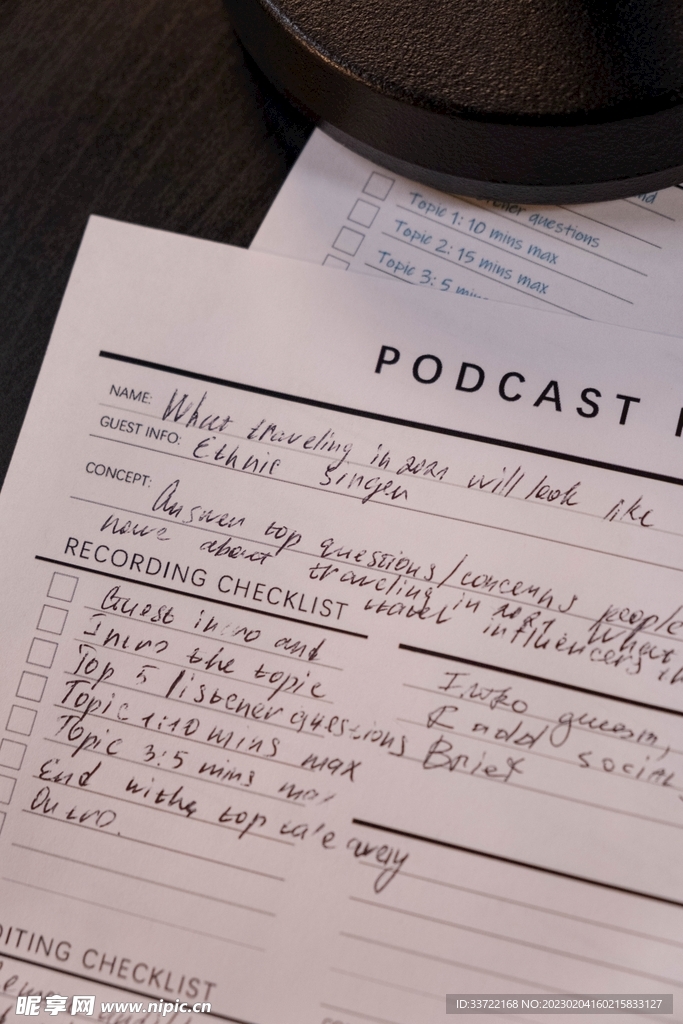 questions
Topic 1: 10 mins max
Topic 2: 15 mins max
Topic 3: 5 mins
PODCAST
NAME: What traveling in 2021 will look like
GUEST INFO: Ethnic Singer
CONCEPT: Answer top questions/concerns people
have about traveling in 2021 What
travel influencers
RECORDING CHECKLIST
Guest intro and
Intro the topic
Top 5 listener questions
Topic 1:10 mins max
Topic 3:5 mins max
End with a top take away
Outro.
Intro guest,
& add social
Brief
DITING CHECKLIST
昵享网 www.nipic.cn
ID:33722168 NO:20230204160215833127